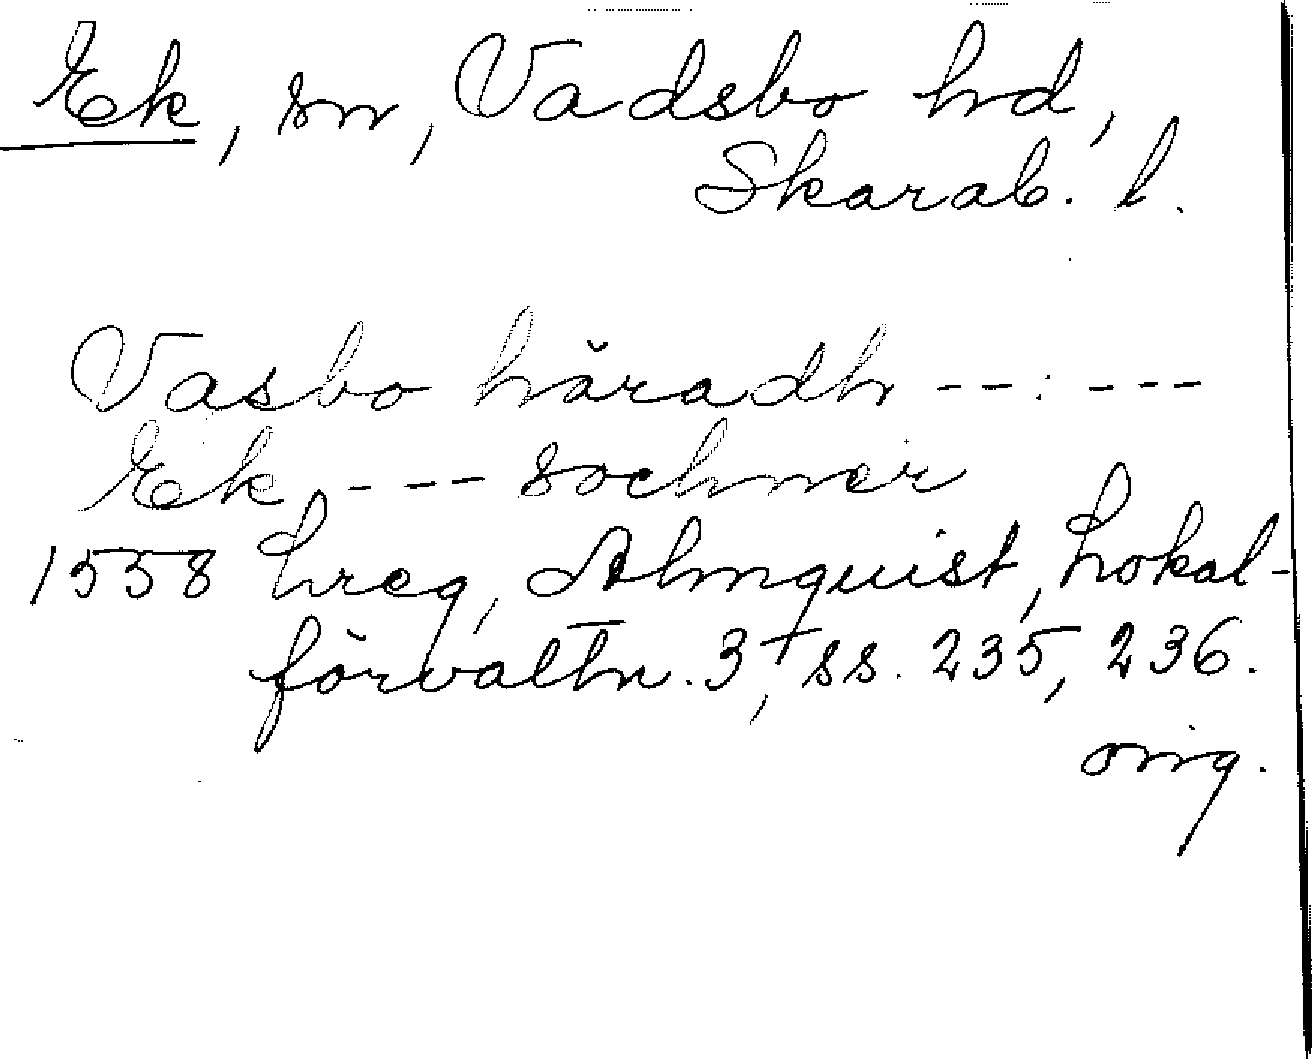 Ek, sn, Vadsbo hd,
Skarab. l.
Vasbo häradh --:---
Ek --- sochner
1558 Lreg, Almquist, Lokal-
förvaltn. 3, ss. 235, 236.
orig.